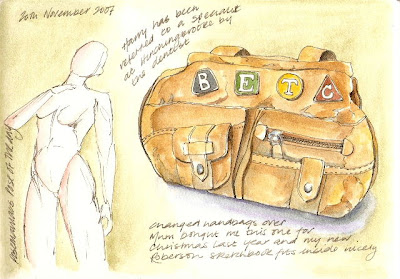 20th November 2007
Harry has been
referred to a specialist
at Hinchingbrooke by
the dentist
BETC
changed handbags over
Mum bought me this one for
Christmas last year and my new
Roberson sketchbook fits inside nicely
pose of the day